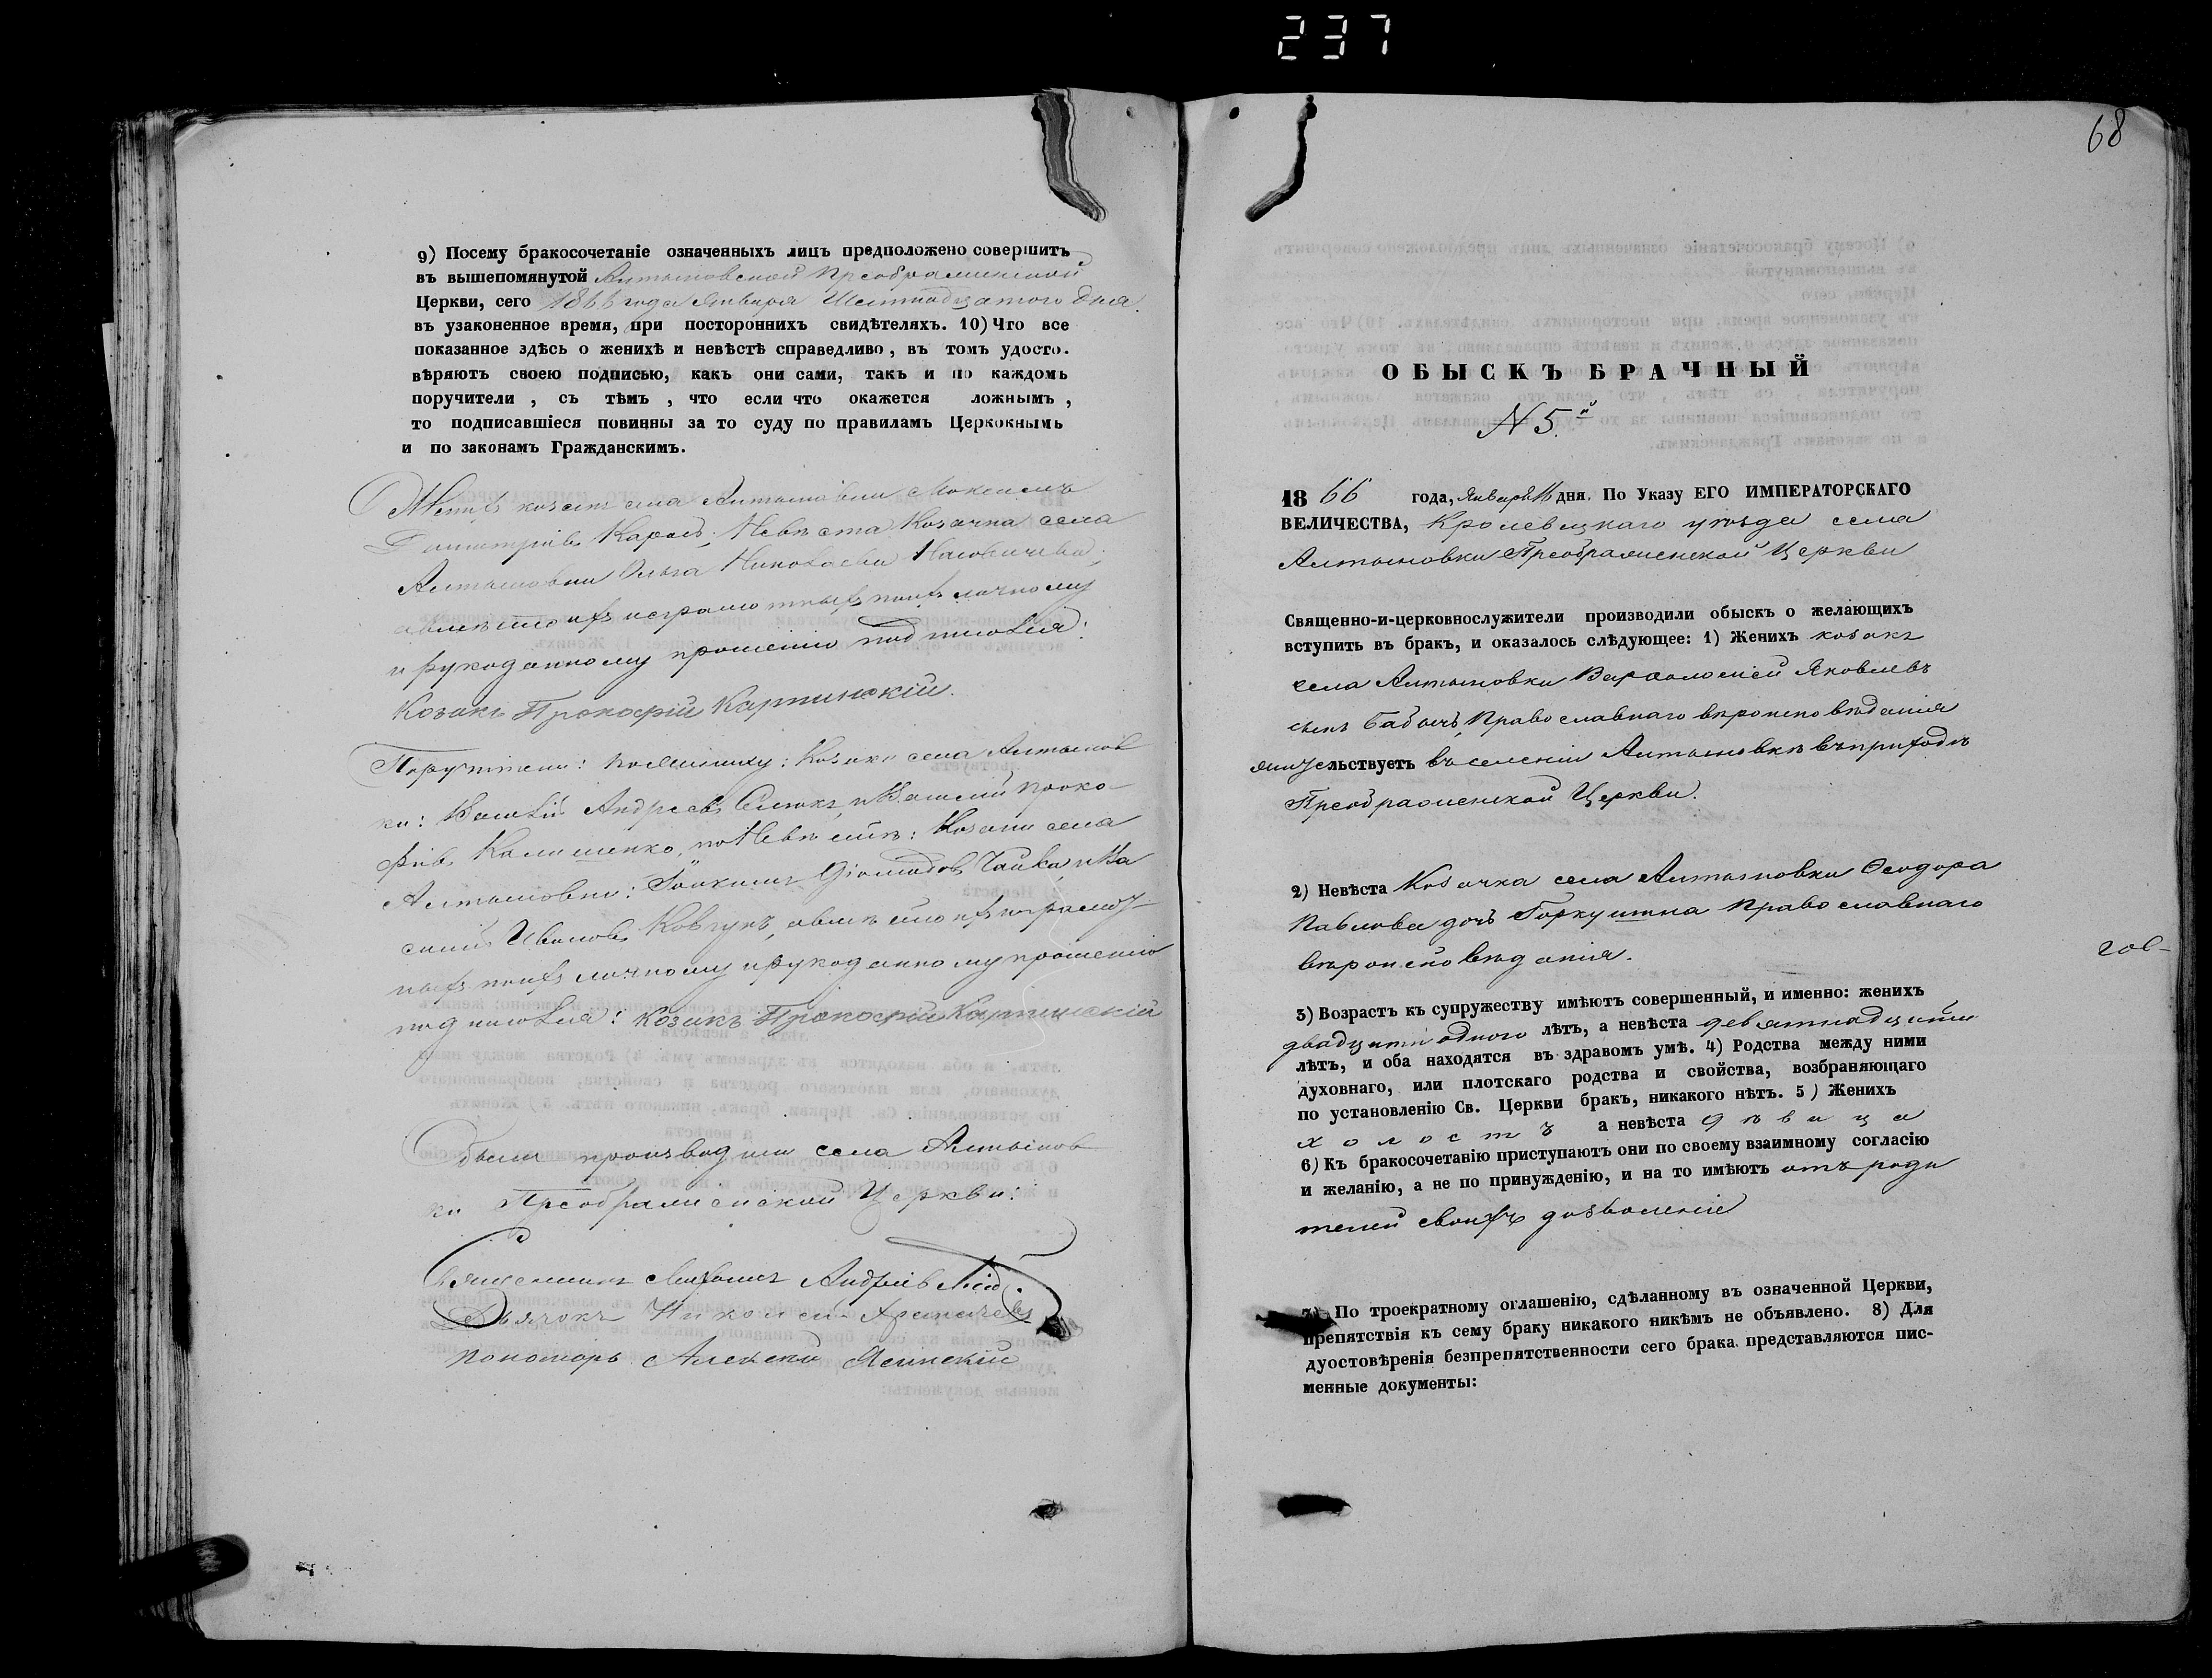 237
9) Посему бракосочетаніе означенныхъ лицъ предположено совершить
въ вышепомянутой Алтыновской Преображенской
Церкви, сего 1866 года Января Шестнадцатого дня.
въ узаконенное время, при постороннихъ свидѣтеляхъ. 10) Что все
показанное здѣсь о женихѣ и невѣстѣ справедливо, въ томъ удосто.
вѣряютъ своею подписью, какъ они сами, такъ и по каждомъ
поручители, съ тѣмъ, что если что окажется ложнымъ,
то подписавшіеся повинны за то суду по правиламъ Церкокнымъ
и по законамъ Гражданскимъ.
Женихъ козакъ села Алтыновки Максимъ
Димитріевъ Невѣста Козачка села
Алтыновки Ольга Николаева
неграмотныхъ поихъ личному
и рукоданному прошенію подписался:
Козакъ Прокофій Карпинскій.
Поручители: по Жениху: Козаки села Алтынов
ки: Василій Андреевъ и Василій Проко
фіевъ Калишенко, по Невѣстѣ: Козаки села
Алтыновки: Іоакимъ Чайка, и Ва
силій Ивановъ Ковгунъ, а вмѣсто ихъ неграмот
ныхъ поихъ личному и рукоданному прошенію
подписался: Козакъ Прокофій Карпинскій
Обыскъ производили села Алтынов
ки Преображенской Церкви:
Священникъ Андріевскій
Дьячокъ Николай
Пономарь Алексѣй Ясинскій
68
ОБЫСКЪ БРАЧНЫЙ
N 5.й
1866 года, Января 16 дня. По Указу ЕГО ИМПЕРАТОРСКАГО
ВЕЛИЧЕСТВА, Кролевецкаго уѣзда села
Алтыновки Преображенской Церкви
Священно-и-церковнослужители производили обыскъ о желающихъ
вступить въ бракъ, и оказалось слѣдующее: 1) Женихъ козакъ
села Алтыновки Варфоломей Яковлевъ
сынъ Бабичъ, Православнаго вѣроисповѣданія
жительствуетъ въ селеніи Алтыновкѣ въ приходѣ
Преображенской Церкви.
2) Невѣста Козачка села Алтыновки Ѳеодора
Павлова дочь Православнаго
вѣроисповѣданія.
3) Возрастъ къ супружеству имѣютъ совершенный, и именно: женихъ
двадцати одного лѣтъ, а невѣста девятнадцати
лѣтъ, и оба находятся въ здравомъ умѣ. 4) Родства между ними
духовнаго, или плотскаго родства и свойства, возбраняющаго
по установленію Св. Церкви бракъ, никакого нѣтъ. 5) Женихъ
холостъ а невѣста дѣвица
6) Къ бракосочетанію приступаютъ они по своему взаимному согласію
и желанію, а не по принужденію, и на то имѣютъ отъ роди
телей своихъ дозволеніе
7) По троекратному оглашенію, сдѣланному въ означенной Церкви,
препятствія къ сему браку никакого никѣмъ не объявлено. 8) Для
дуостовѣренія безпрепятственности сего брака представляются пис-
менные документы: